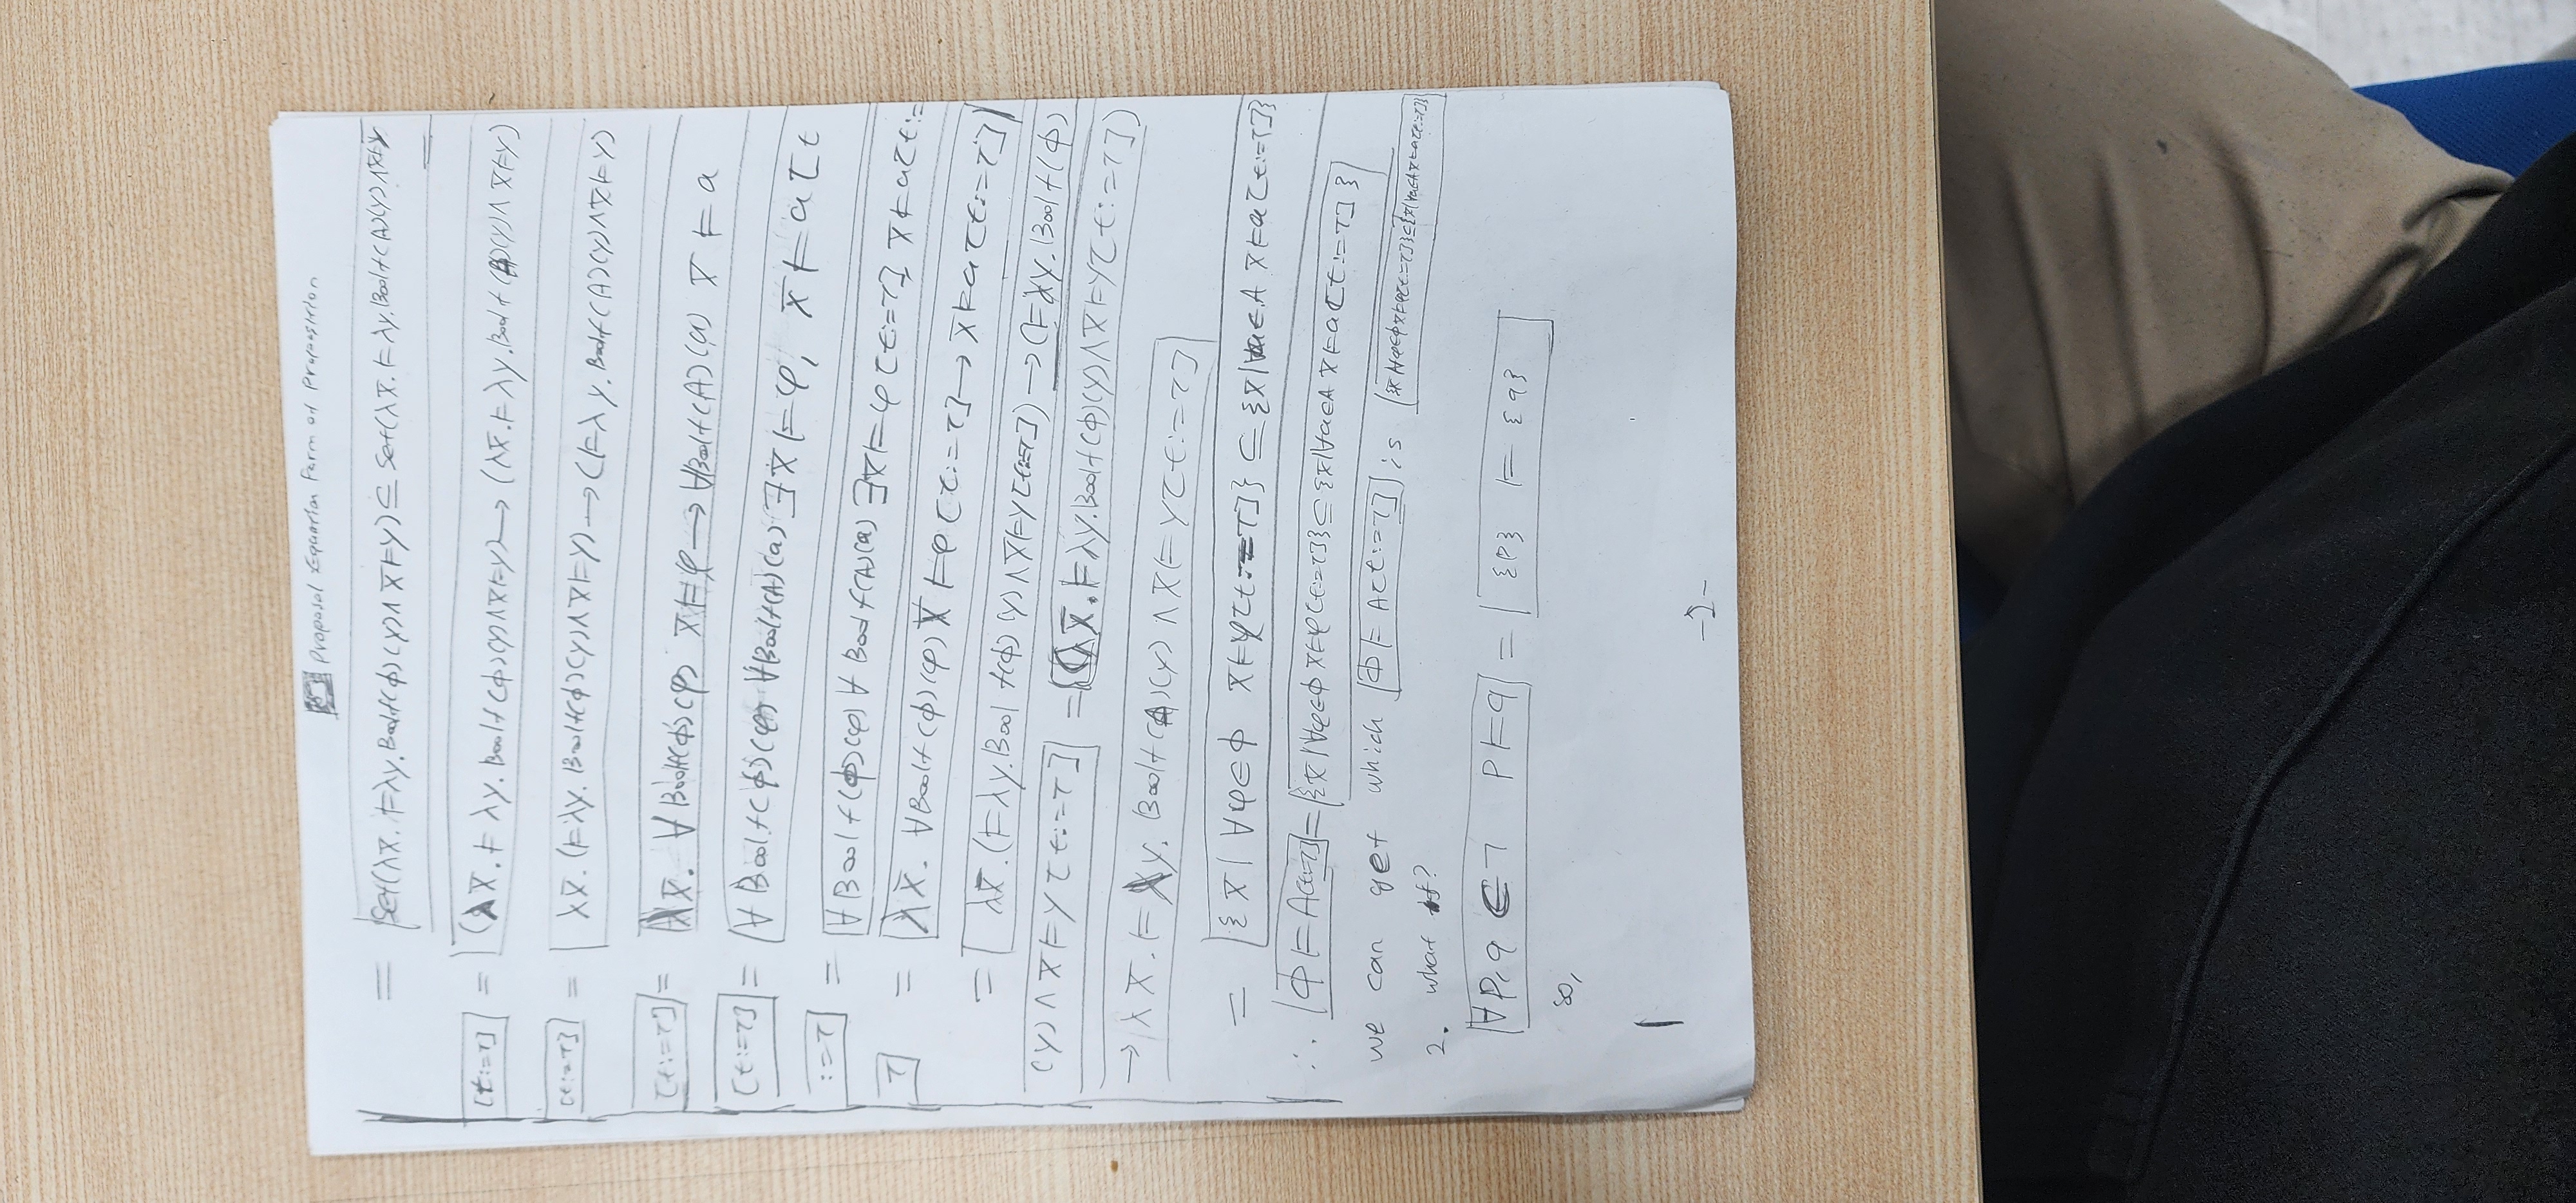 Proposal Equation Form of Proposition
= Set(λx̄. ⊨λy. Bool+(ϕ)(y)∧x̄⊨y) ⊆ Set(λx̄. ⊨λy. Bool+(A)(y)∧x̄⊨y
[t:=τ] = (λx̄. ⊨ λy. Bool+(ϕ)(y)∧x̄⊨y) → (λx̄. ⊨ λy. Bool+(A)(y)∧x̄⊨y)
[t:=τ] = λx̄. (⊨λy. Bool+(ϕ)(y)∧x̄⊨y) → (⊨λy. Bool+(A)(y)∧x̄⊨y)
[t:=τ] = λx̄. ∀Bool+(ϕ)(φ) x̄⊨φ → ∀Bool+(A)(a) x̄ ⊨ a
[t:=τ] = ∀Bool+(ϕ)(φ) ∀Bool+(A)(a) ∃x̄⊨φ, x̄ ⊨ a[t
:=τ] = ∀Bool+(ϕ)(φ) ∀Bool+(A)(a) ∃x̄⊨φ[t:=τ] x̄⊨a[t:=
τ] = λx̄. ∀Bool+(ϕ)(φ) x̄ ⊨φ[t:=τ] → x̄⊨a[t:=τ]
= λx̄. (⊨λy. Bool+(ϕ)(y)∧x̄⊨y[t:=τ]) → (⊨λy. Bool+(ϕ)
(y)∧x̄⊨y[t:=τ] = (λx̄. ⊨λy. Bool+(ϕ)(y)∧x̄⊨y[t:=τ])
→ λx̄. ⊨ λy. Bool+(A)(y) ∧x̄⊨y[t:=τ]
= {x̄ | ∀φ∈ϕ x̄⊨φ[t:=τ]} ⊆ {x̄|∀a∈A x̄⊨a[t:=τ]}
∴ ϕ⊨A[t:=τ] = {x̄|∀φ∈ϕ x̄⊨φ[t:=τ]} ⊆ {x̄|∀a∈A x̄⊨a[t:=τ]}
we can get which ϕ⊨A[t:=τ] is {x̄|∀φ∈ϕ x̄⊨φ[t:=τ]}⊆{x̄|∀a∈A x̄⊨a[t:=τ]}
2. what if?
∀p,q ∈ p⊨q = {p} ⊨ {q}
so,